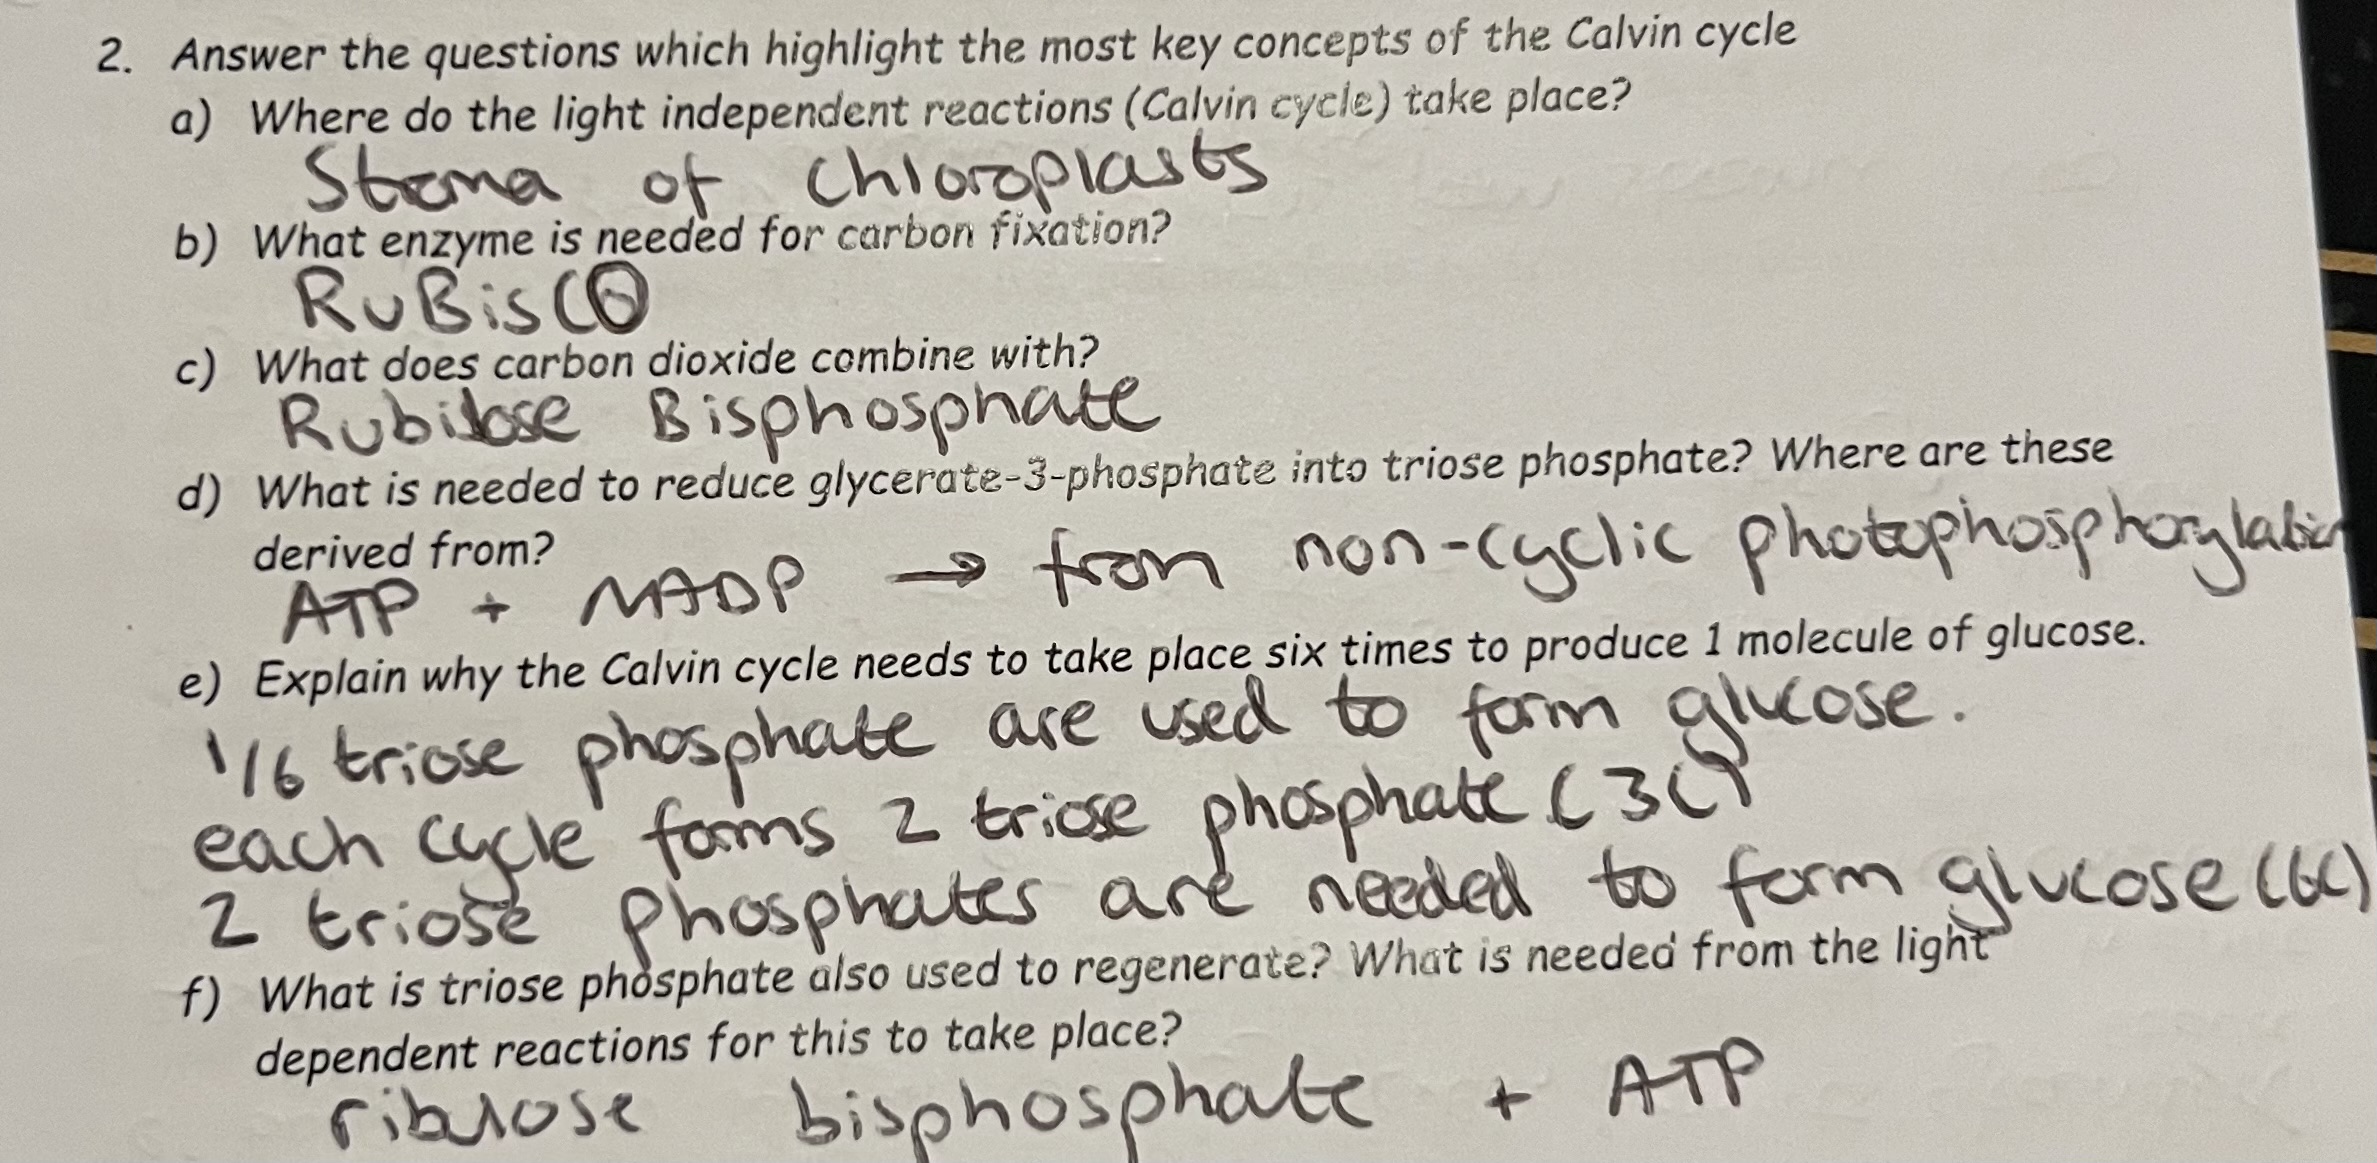 2. Answer the questions which highlight the most key concepts of the Calvin cycle
a) Where do the light independent reactions (Calvin cycle) take place?
Stroma of chloroplasts
b) What enzyme is needed for carbon fixation?
RuBisCO
c) What does carbon dioxide combine with?
Rubilose Bisphosphate
d) What is needed to reduce glycerate-3-phosphate into triose phosphate? Where are these
derived from?
ATP + NADP → from non-cyclic photophosphorylation
e) Explain why the Calvin cycle needs to take place six times to produce 1 molecule of glucose.
1/6 triose phosphate are used to form glucose.
each cycle forms 2 triose phosphate (3C)
2 triose phosphates are needed to form glucose (6C)
f) What is triose phosphate also used to regenerate? What is needed from the light
dependent reactions for this to take place?
ribulose bisphosphate + ATP